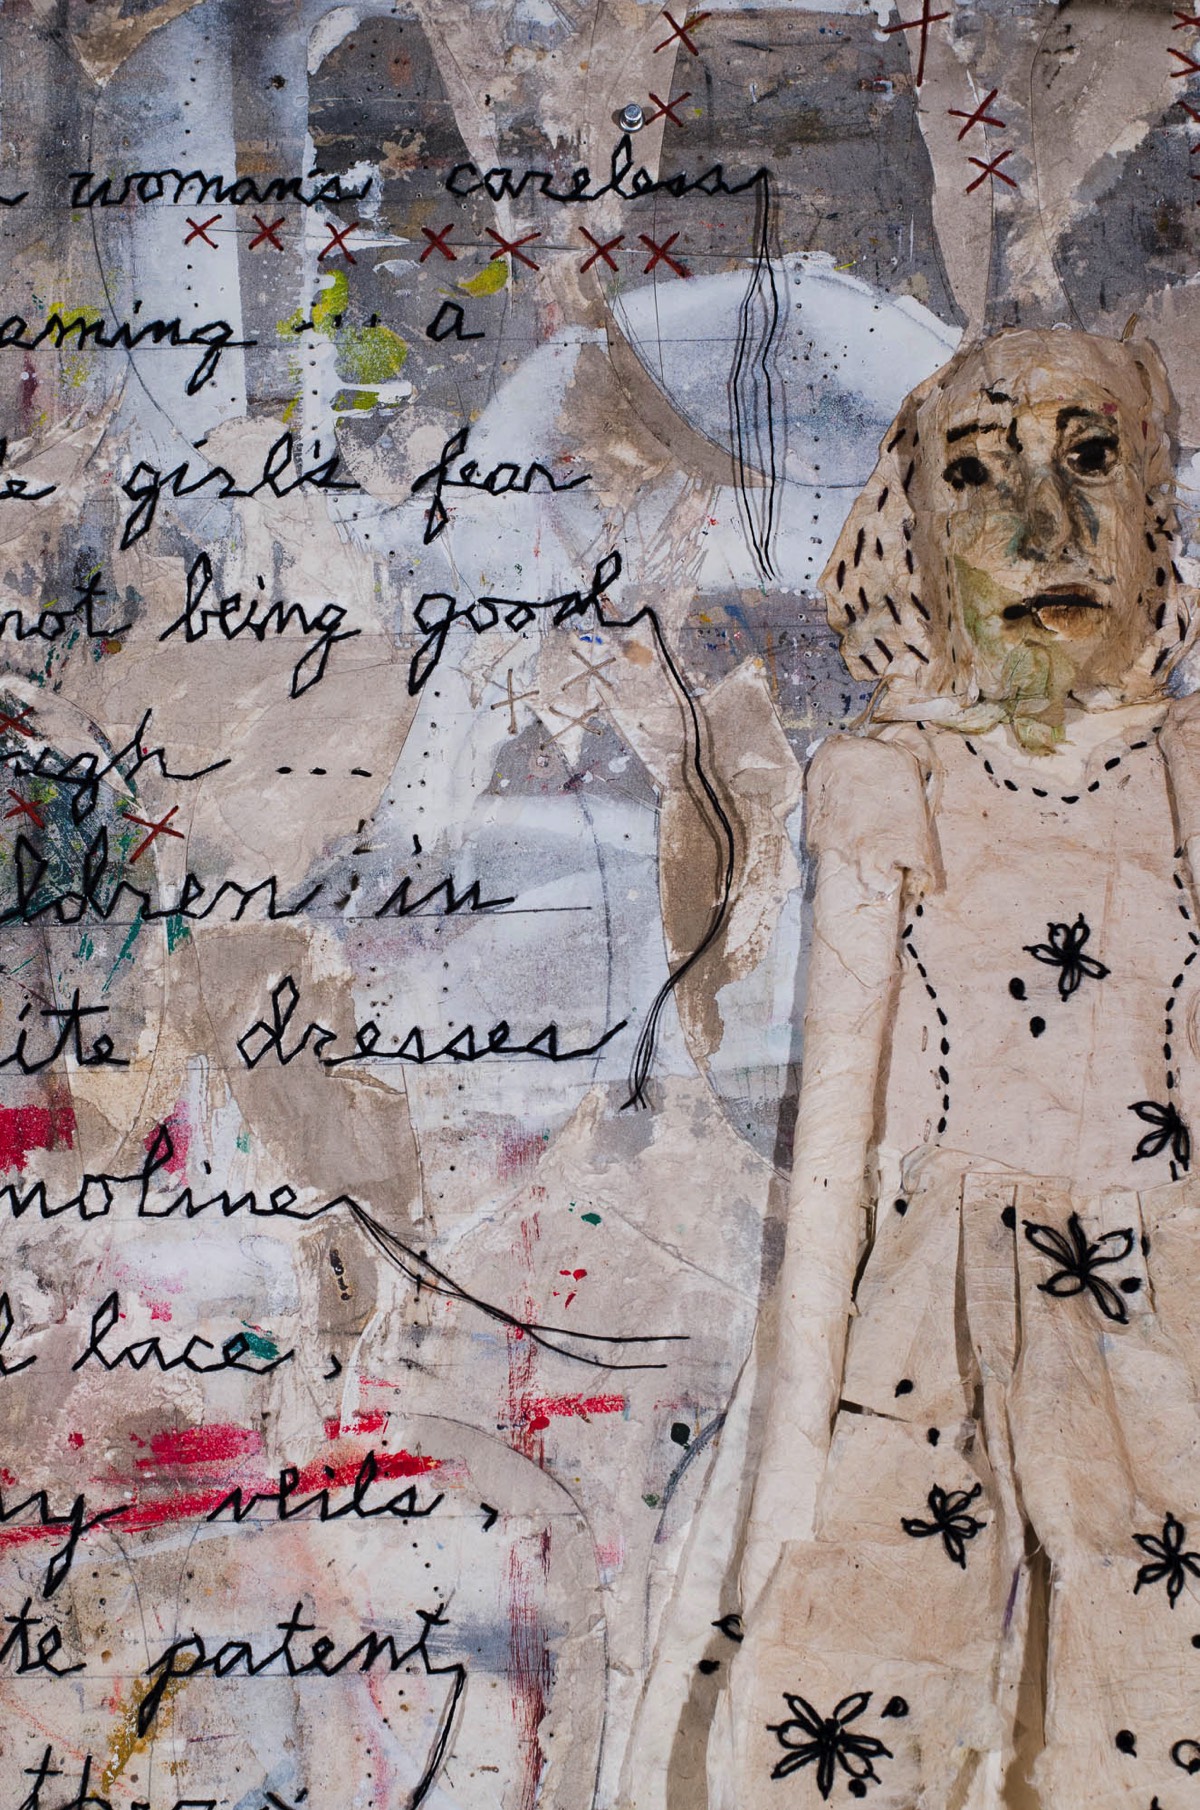 woman's careless
aming --- a
e girl's fear
not being good
ugh ----
ldren in
ite dresses
noline
lace,
ry veils,
te patent